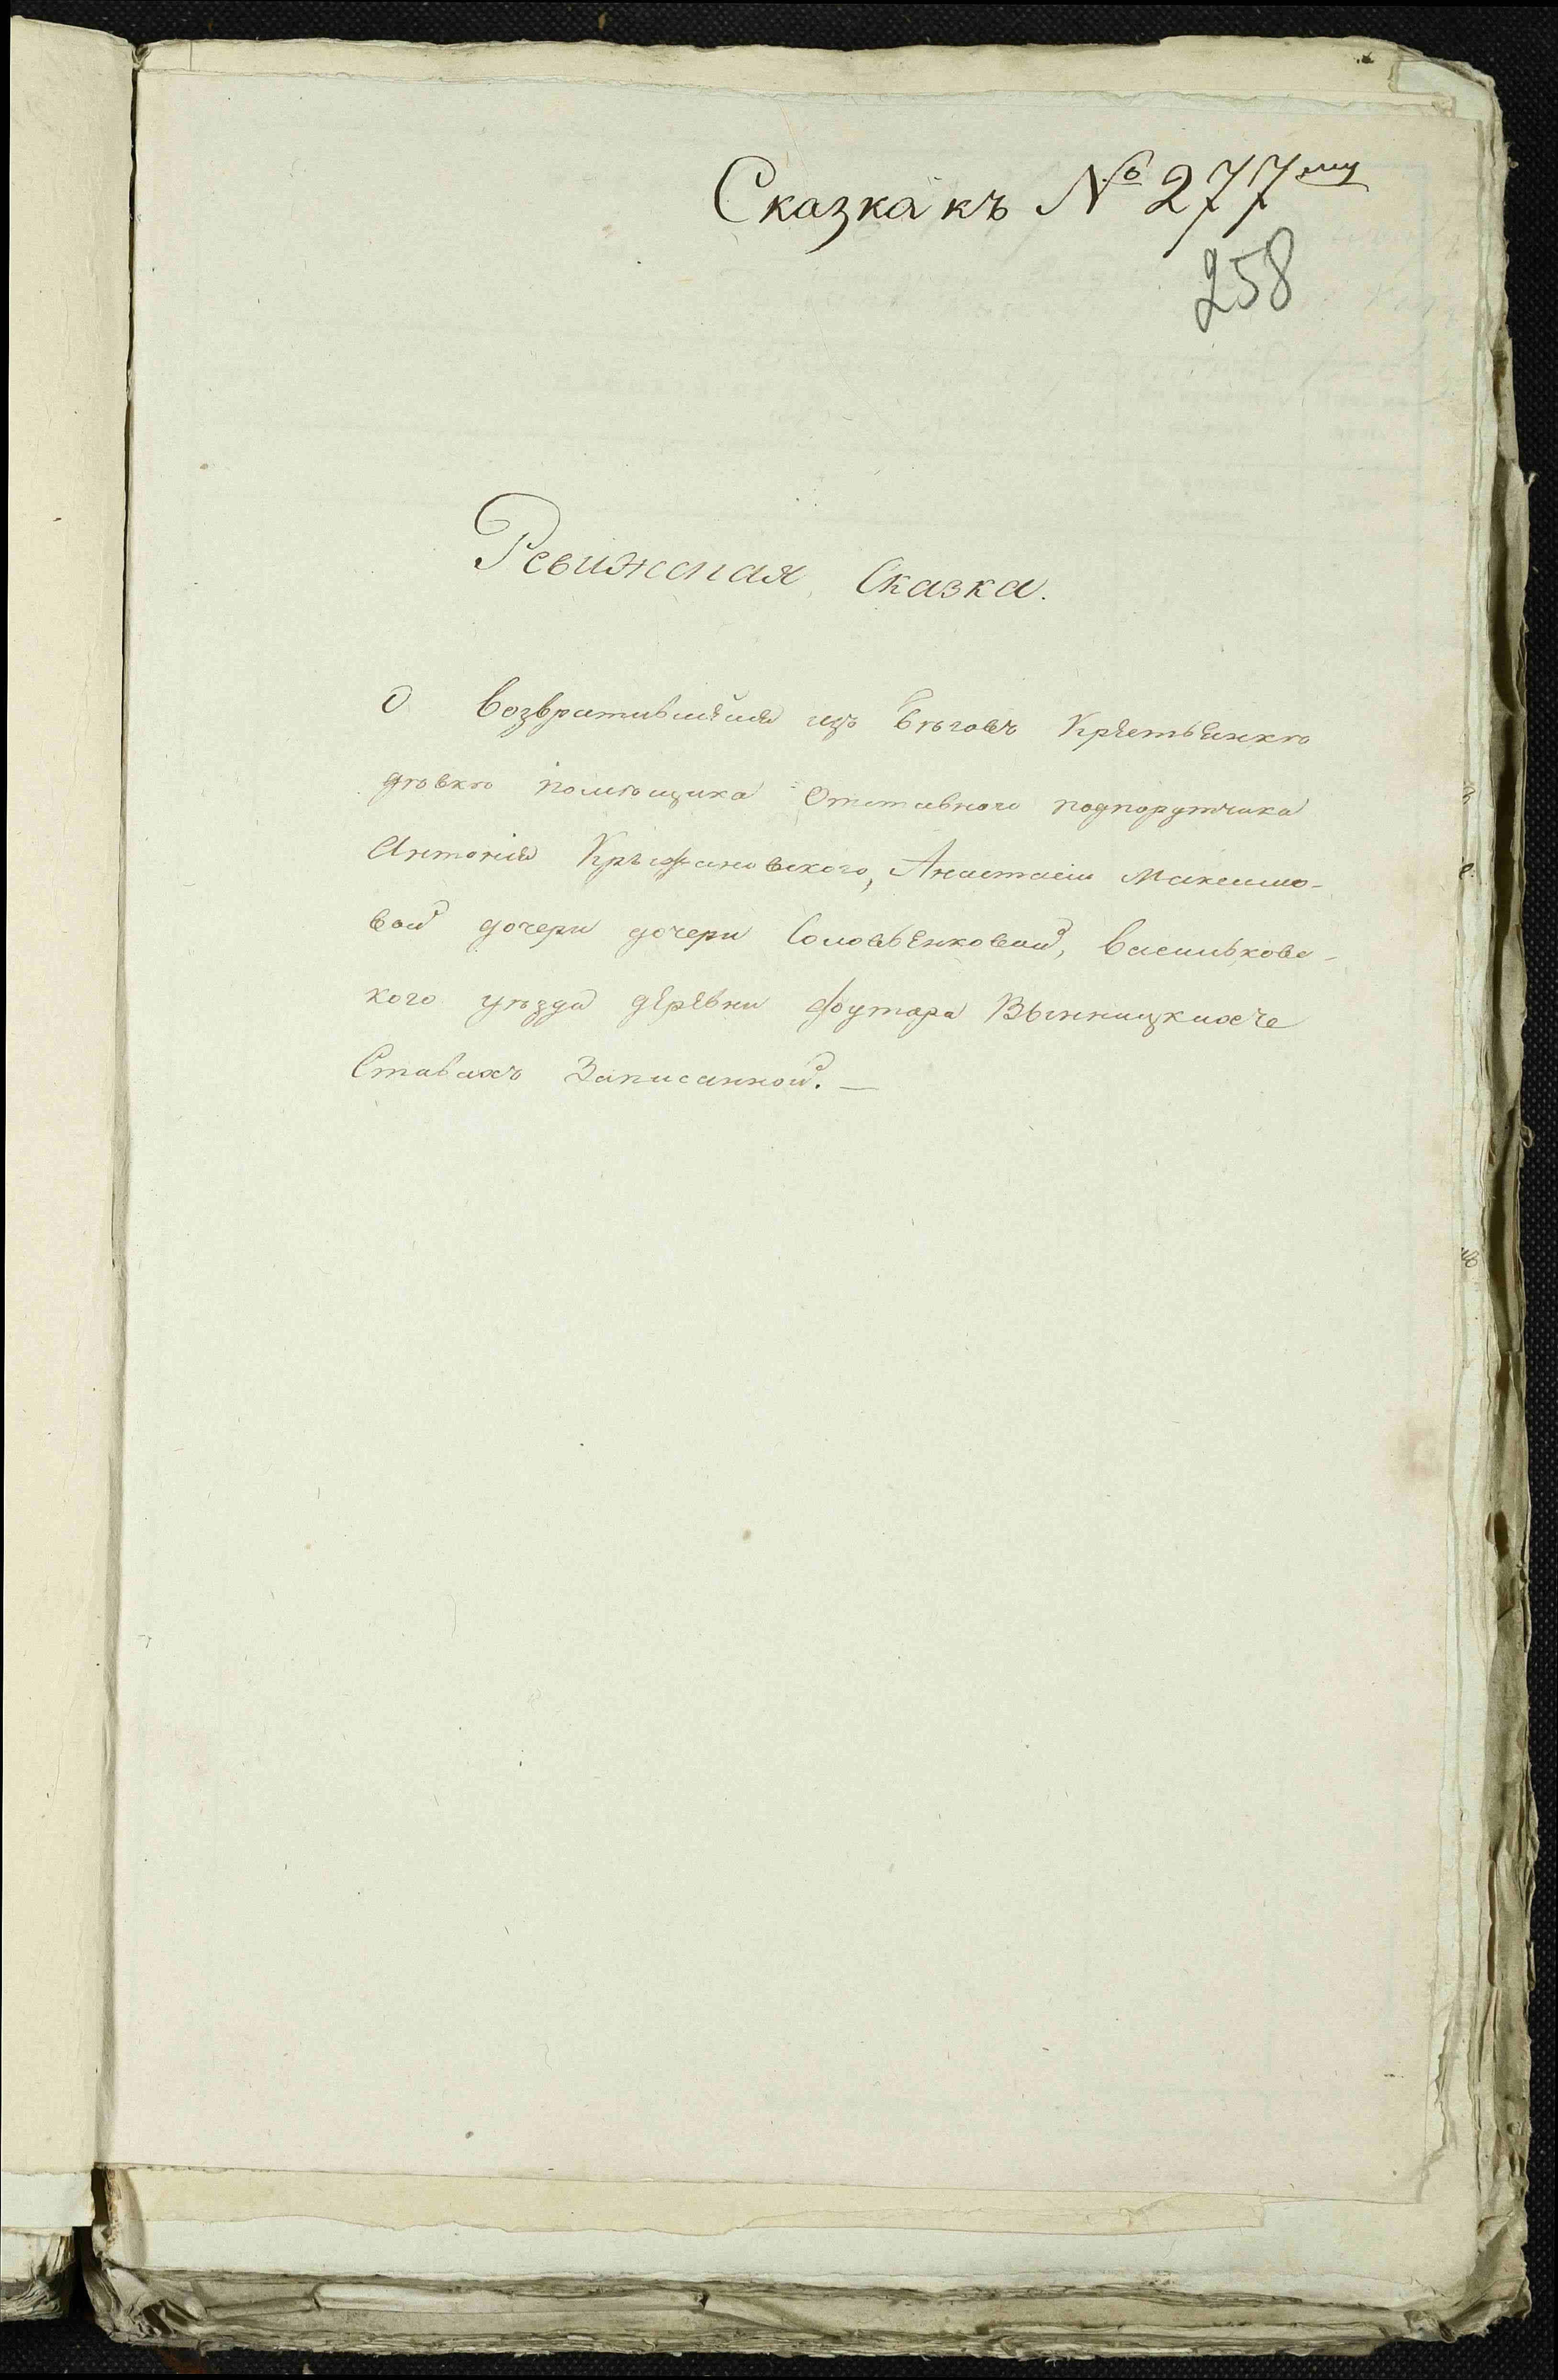 Сказка къ № 277му
258
Ревижская Сказка.
О возвратившейся изъ Бѣговъ Крестьянкѣ
дѣвкѣ помѣщика Отставного подпорутчика
Антонія Крыжановского, Анастасіи Максимо-
вой дочери дочери Соловьенковой, Васильковс-
кого уѣзда деревни футора Вынницкихъ
Ставахъ Записанной. —